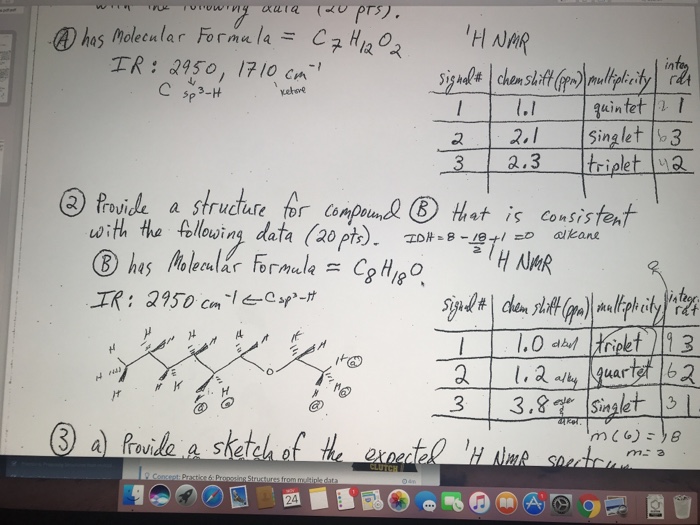 with the following data (20 pts).
Ⓐ has Molecular Formula = C7H12O2
IR: 2950, 1710 cm-1
C sp3-H ketone
1H NMR
signal# chem shift (ppm) multiplicity integ rat
1 1.1 quintet 2 1
2 2.1 singlet 6 3
3 2.3 triplet 4 2
② Provide a structure for compound Ⓑ that is consistent
with the following data (20 pts). IDH = 8 - 18/2 + 1 = 0 alkane
Ⓑ has Molecular Formula = C8H18O
1H NMR
IR: 2950 cm-1 ← Csp3-H
signal # chem shift (ppm) multiplicity integr rat
1 1.0 alkyl triplet 9 3
2 1.2 alkyl quartet 6 2
3 3.8 ester singlet 3 1
m(6) = 18
m = 3
H H H H H H H H H O H
③ a) Provide a sketch of the expected 1H NMR spectrum
Concept: Practice 6: Proposing Structures from multiple data
CLUTCH
24